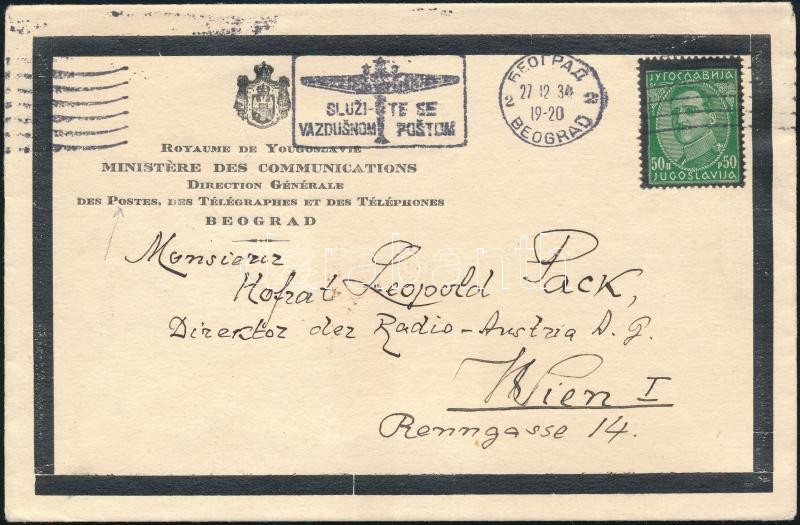 SLUŽI- TE SE
VAZDUŠNOM POŠTOM
БЕОГРАД
27 12 34
2 2
19-20
BEOGRAD
ЈУГОСЛАВИЈА
50 П P 50
JUGOSLAVIJA
ROYAUME DE YOUGOSLAVIE
MINISTÈRE DES COMMUNICATIONS
DIRECTION GÉNÉRALE
DES POSTES, DES TÉLÉGRAPHES ET DES TÉLÉPHONES
BEOGRAD
Monsieur
Hofrat Leopold Pack,
Direktor der Radio-Austria A. G.
Wien I
Renngasse 14.
darabanth